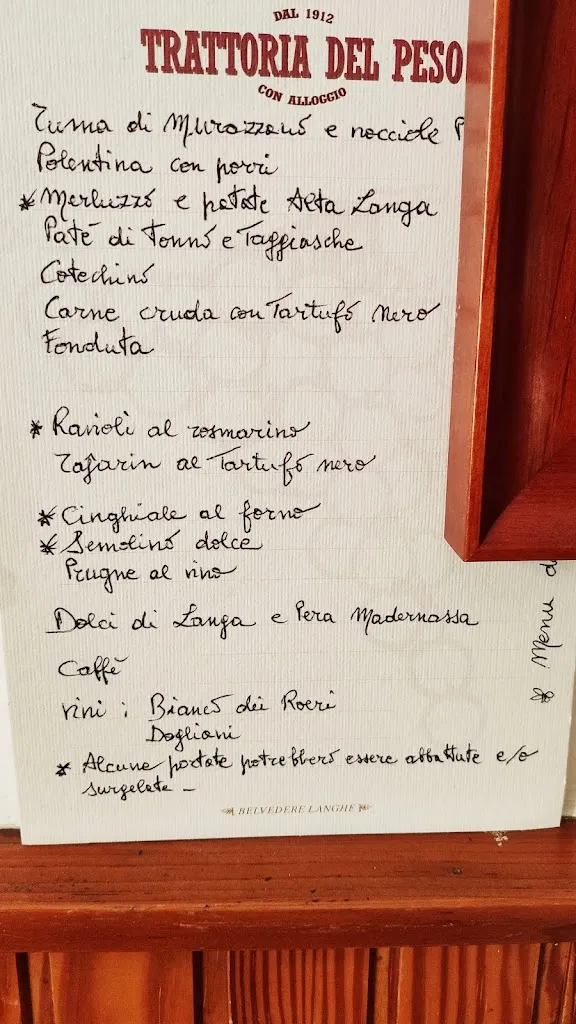 DAL 1912
TRATTORIA DEL PESO
CON ALLOGGIO
Tuma di Murazzano e nocciole P
Polentina con porri
* Merluzzo e patate Alta Langa
Patè di Tonno e Taggiasche
Cotechino
Carne cruda con Tartufo nero
Fonduta
* Ravioli al rosmarino
Tajarin al Tartufo nero
* Cinghiale al forno
* Semolino dolce
Prugne al vino
Dolci di Langa e Pera Madernassa
Caffè
vini : Bianco dei Roeri
Dogliani
* Alcune portate potrebbero essere abbattute e/o
surgelate -
BELVEDERE LANGHE
Menu d